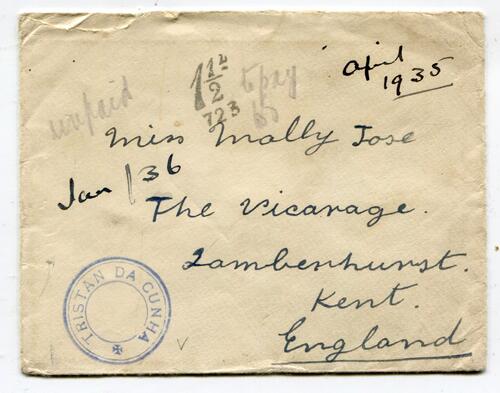 April
1935
unpaid
1 1/2
723
to pay
Miss Molly Jose
Jan/36
The Vicarage.
Lamberhurst.
Kent.
England
TRISTAN DA CUNHA